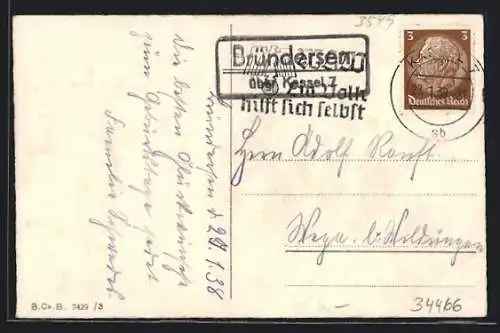 3545
Bründersen
über Kassel 7
Ein Volk
hilft sich selbst
3 3
Deutsches Reich
sb
Bründersen d. 20.1.38
Die besten Glückwünsche
zum Geburtstage sendet
Familie
Herrn Adolf
Wega b. Wildungen
B.C.B. 7429 /3
34466